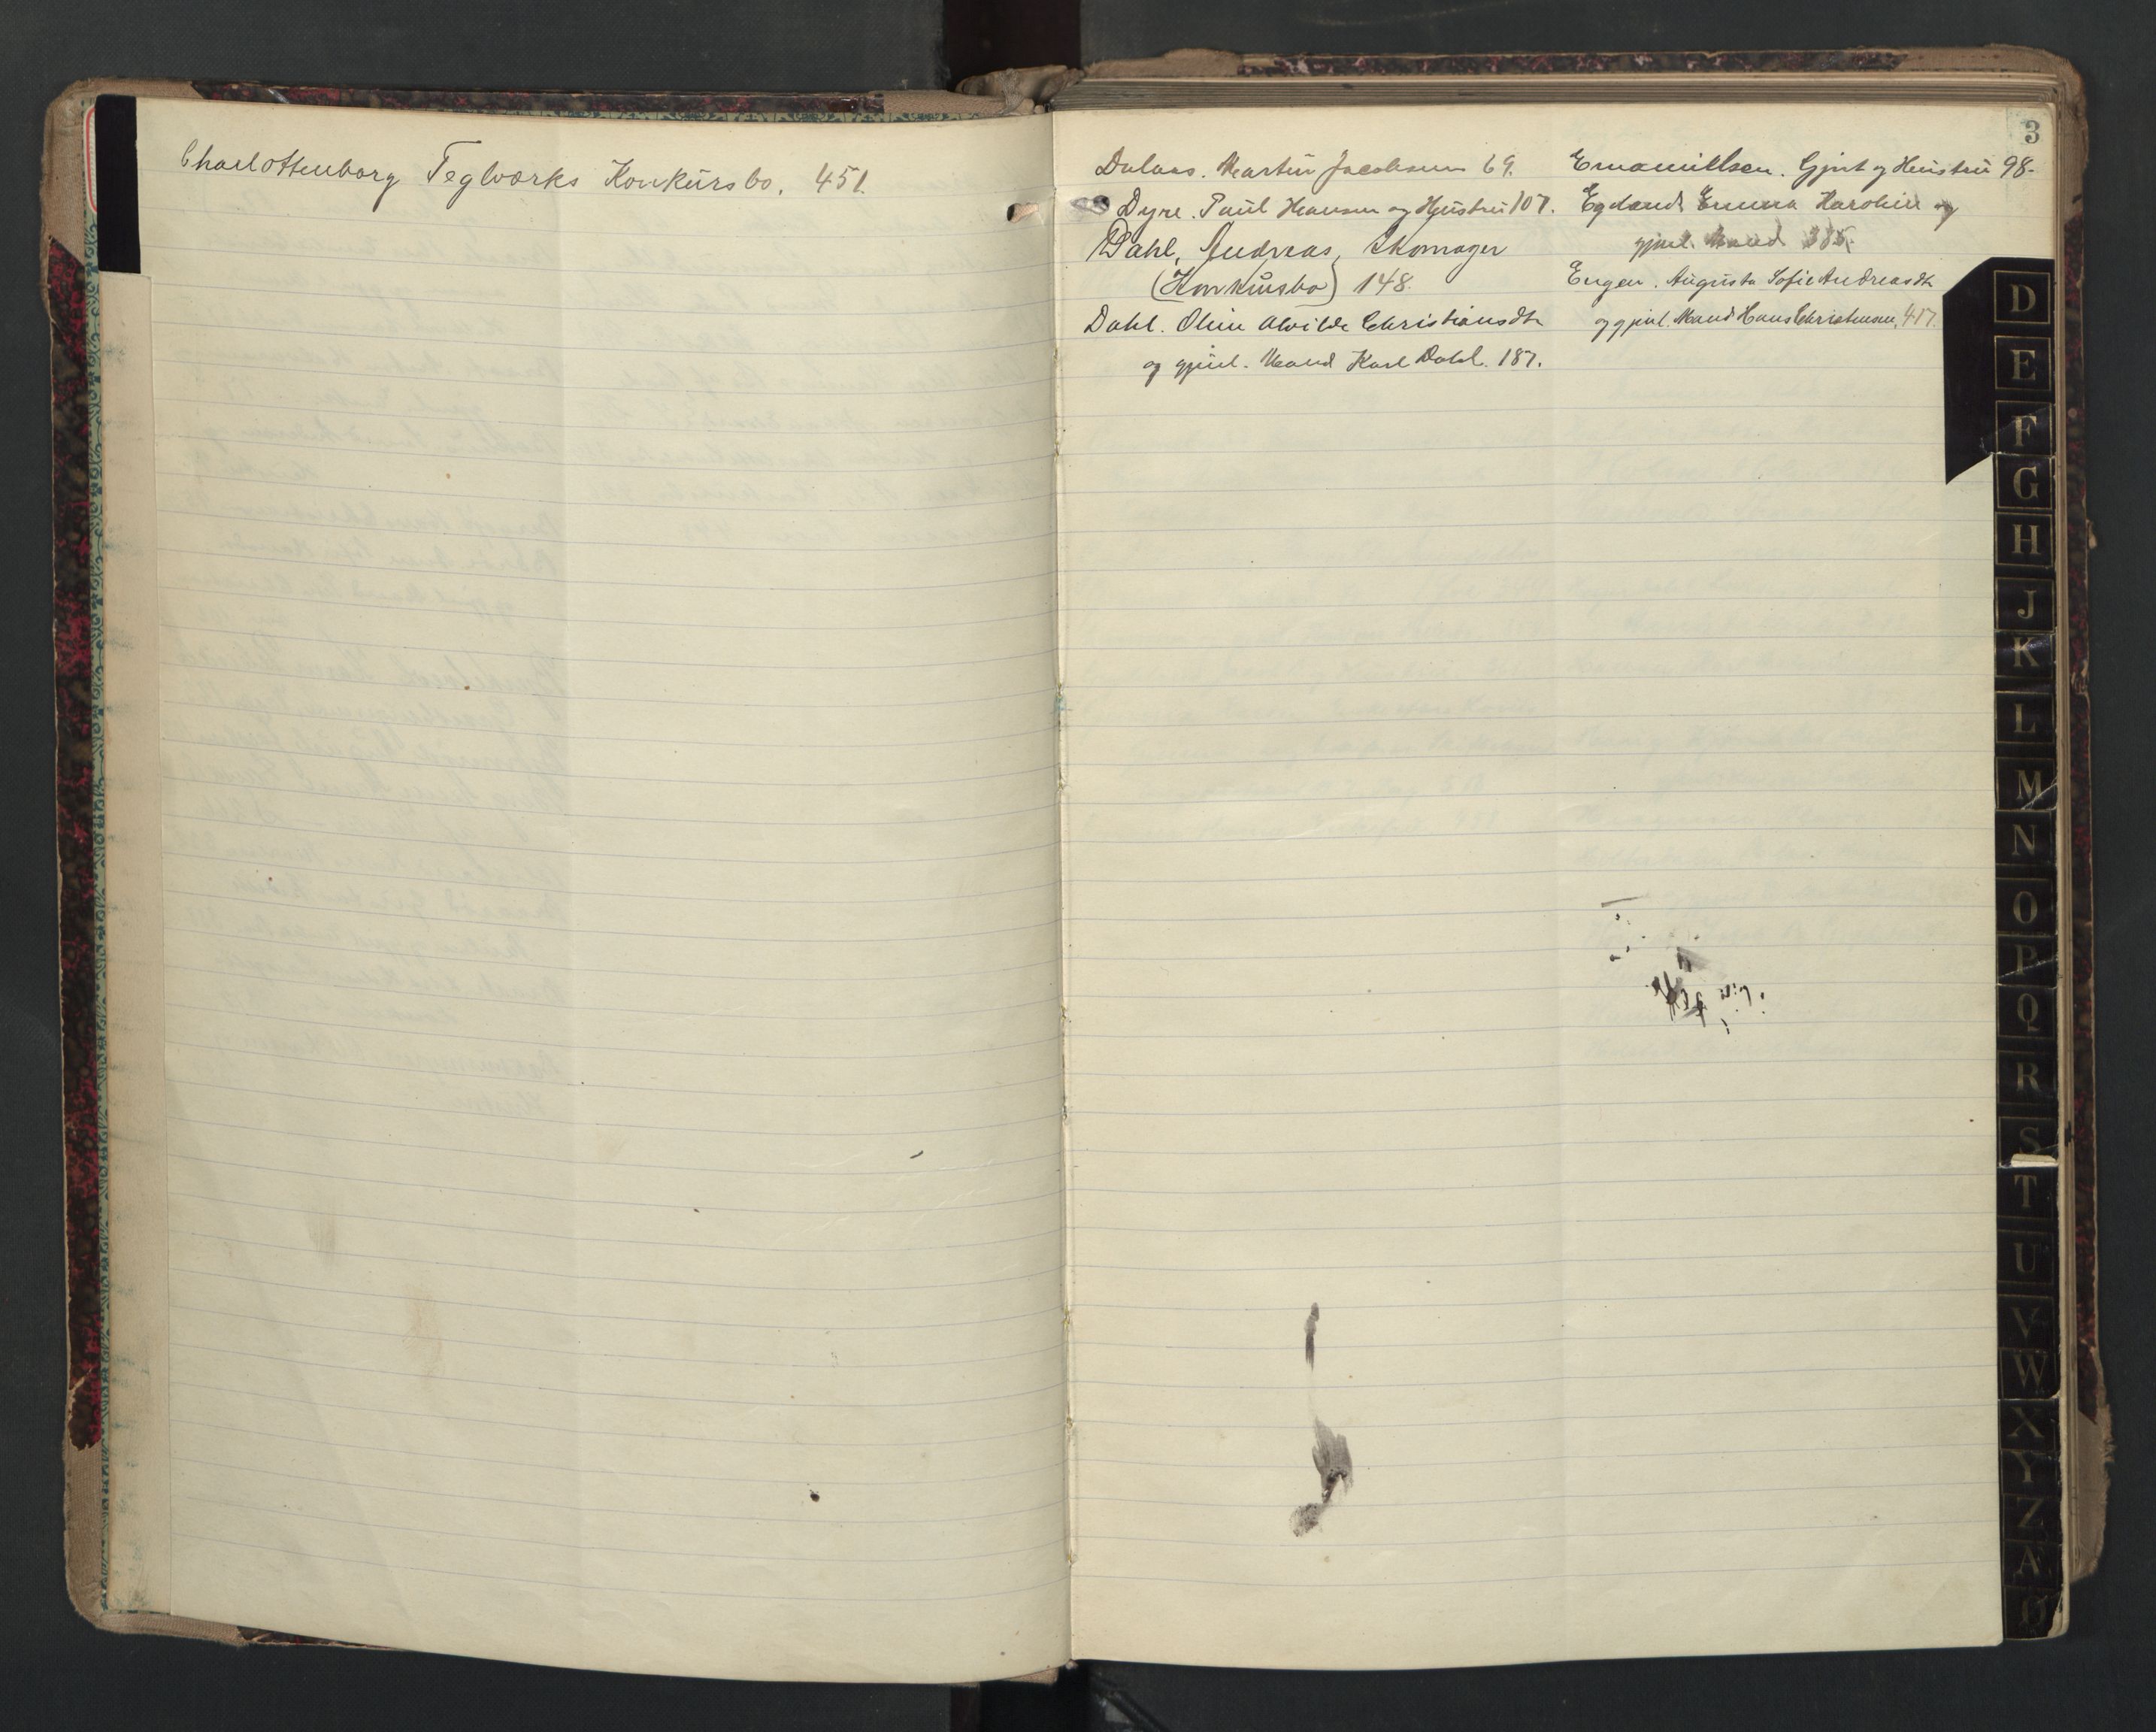 Charlottenborg Teglværks Konkursbo, 451.
3
Dalaas. Martin Jacobsen 69.
Dyre. Paul Hansen og Hustru 107.
Dahl, Andreas, Skomager
(Konkursbo) 148.
Dahl. Oline Alvilde Christiansdtr
og gjenl. Mand Karl Dahl. 187.
Emanuillsen. Gjert og Hustru 98.
Egeland. Emma Karoline og
gjenl. Mand 385.
Engen. Augusta Sofie Andreasdtr
og gjenl. Mand Hans Christensen, 417.
D
E
F
G
H
J
K
L
M
N
O
P
Q
R
S
T
U
V
W
X
Y
Z
Æ
Ø